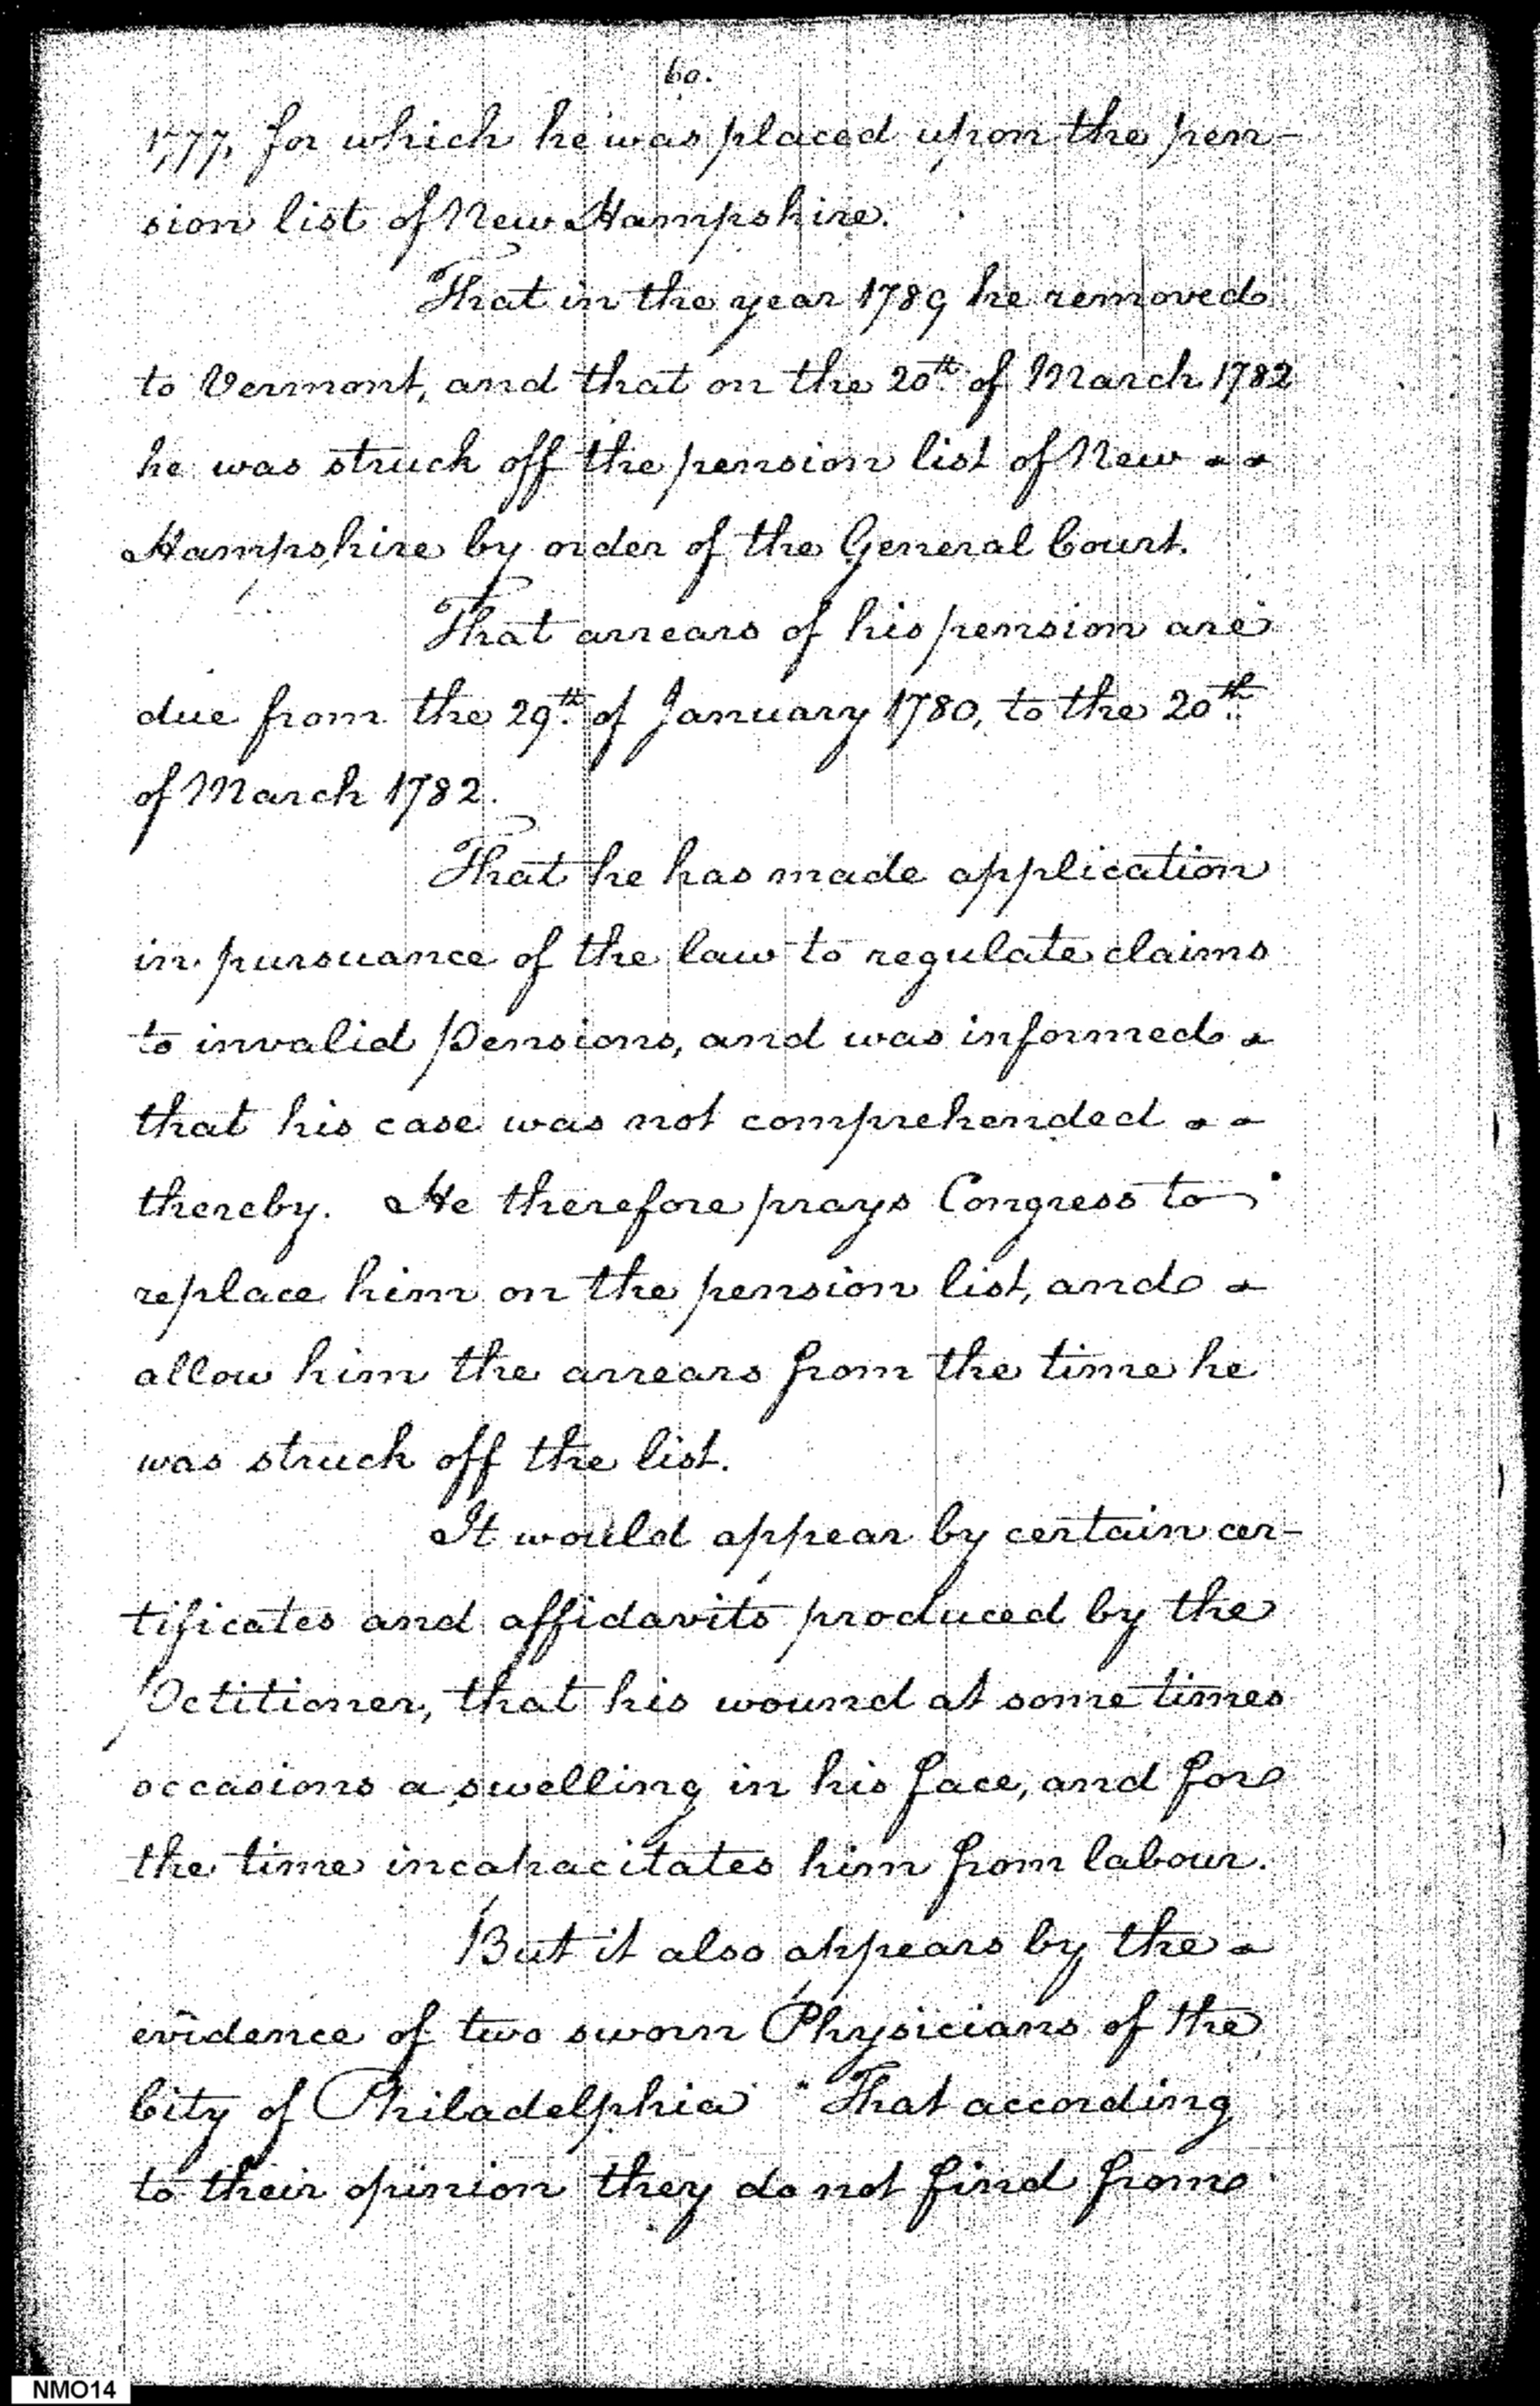 60.
1777, for which he was placed upon the pen-
sion list of New Hampshire.
That in the year 1789 he removed
to Vermont, and that on the 20th of March 1782
he was struck off the pension list of New
Hampshire by order of the General Court.
That arrears of his pension are
due from the 29th of January 1780, to the 20th
of March 1782.
That he has made application
in pursuance of the law to regulate claims
to invalid Pensions, and was informed
that his case was not comprehended
thereby. He therefore prays Congress to
replace him on the pension list, and
allow him the arrears from the time he
was struck off the list.
It would appear by certain cer-
tificates and affidavits produced by the
Petitioner, that his wound at some times
occasions a swelling in his face, and for
the time incapacitates him from labour.
But it also appears by the
evidence of two sworn Physicians of the
City of Philadelphia "That according
to their opinion they do not find from
NMO14